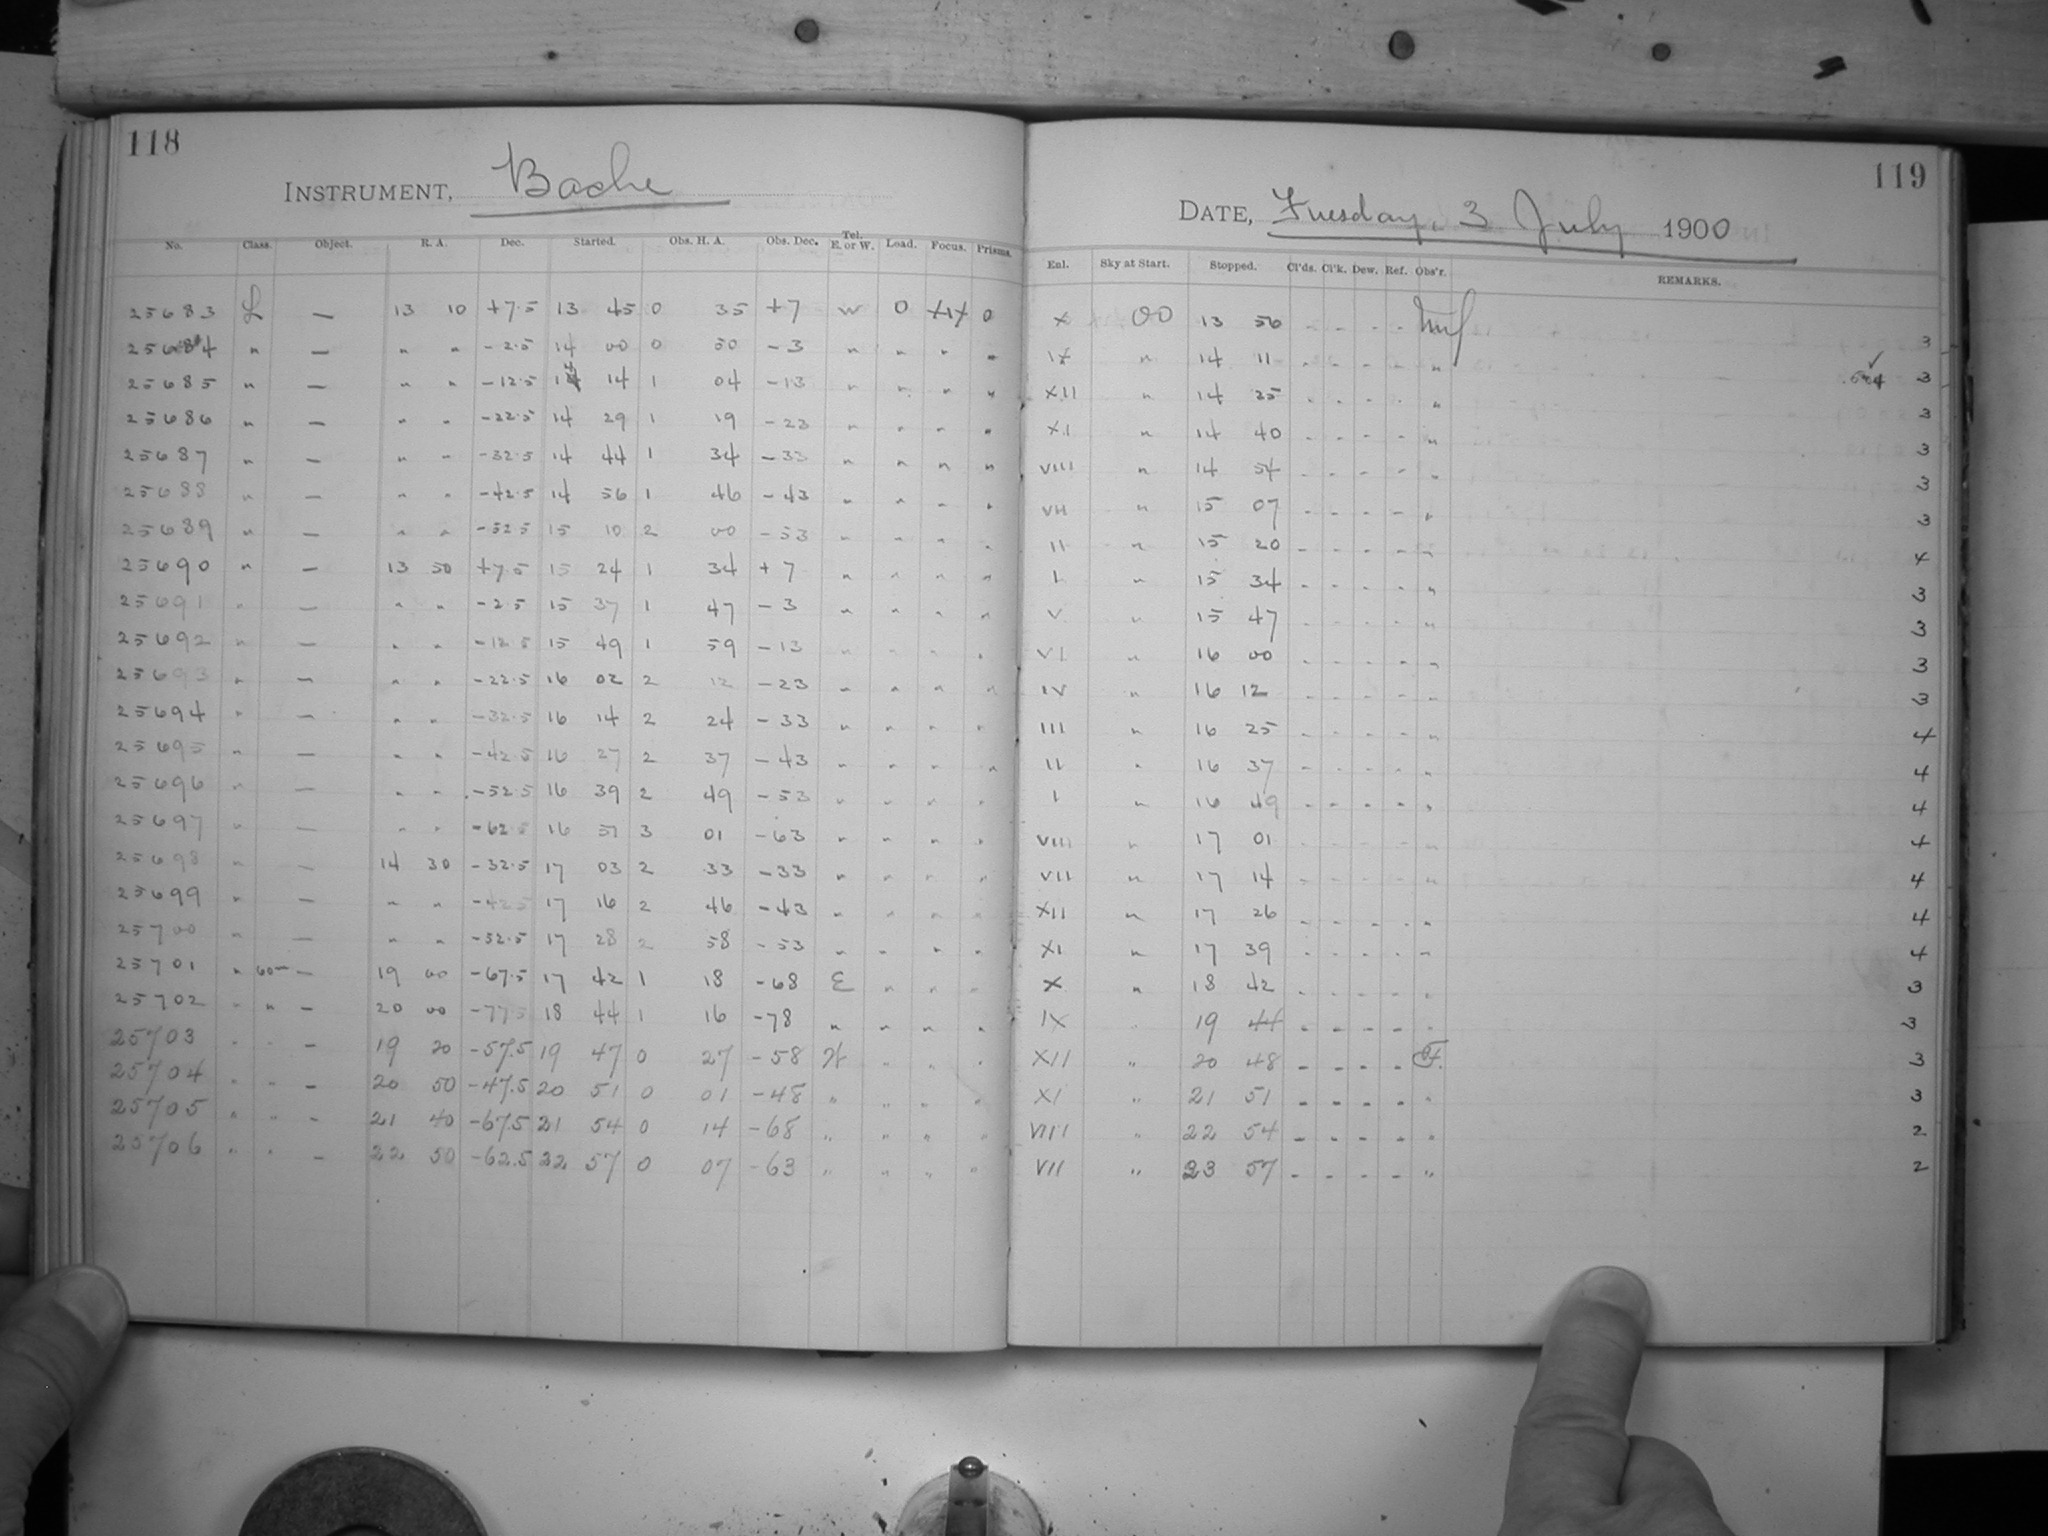 118
INSTRUMENT, Bache
No. Class. Object. R. A. Dec. Started. Obs. H. A. Obs. Dec. Tel. E. or W. Load. Focus. Prisms.
25683 L — 13 10 +7.5 13 45 0 35 +7 W 0 0
25684 " — " " -2.5 14 00 0 50 -3 " " " "
25685 " — " " -12.5 14 14 1 04 -13 " " " "
25686 " — " " -22.5 14 29 1 19 -23 " " " "
25687 " — " " -32.5 14 44 1 34 -33 " " " "
25688 " — " " -42.5 14 56 1 46 -43 " " " "
25689 " — " " -52.5 15 10 2 00 -53 " " " "
25690 " — 13 50 +7.5 15 24 1 34 +7 " " " "
25691 " — " " -2.5 15 37 1 47 -3 " " " "
25692 " — " " -12.5 15 49 1 59 -13 " " " "
25693 " — " " -22.5 16 02 2 12 -23 " " " "
25694 " — " " -32.5 16 14 2 24 -33 " " " "
25695 " — " " -42.5 16 27 2 37 -43 " " " "
25696 " — " " -52.5 16 39 2 49 -53 " " " "
25697 " — " " -62.5 16 51 3 01 -63 " " " "
25698 " — 14 30 -32.5 17 03 2 33 -33 " " " "
25699 " — " " -42.5 17 16 2 46 -43 " " " "
25700 " — " " -52.5 17 28 2 58 -53 " " " "
25701 " 60m — 19 00 -67.5 17 42 1 18 -68 E " " "
25702 " " — 20 00 -77.5 18 44 1 16 -78 " " " "
25703 " " — 19 20 -57.5 19 47 0 27 -58 W " " "
25704 " " — 20 50 -47.5 20 51 0 01 -48 " " " "
25705 " " — 21 40 -67.5 21 54 0 14 -68 " " " "
25706 " " — 22 50 -62.5 22 57 0 07 -63 " " " "
119
DATE, Tuesday, 3 July 1900
Enl. Sky at Start. Stopped. Cl'ds. Cl'k. Dew. Ref. Obs'r. REMARKS.
X 00 13 56 - - - - 3
IX " 14 11 - - - - " 3
XII " 14 25 - - - - " 3
XI " 14 40 - - - - " 3
VIII " 14 54 - - - - " 3
VII " 15 07 - - - - " 3
II " 15 20 - - - - " 4
I " 15 34 - - - - " 3
V " 15 47 - - - - " 3
VI " 16 00 - - - - " 3
IV " 16 12 - - - - " 3
III " 16 25 - - - - " 4
II " 16 37 - - - - " 4
I " 16 49 - - - - " 4
VIII " 17 01 - - - - " 4
VII " 17 14 - - - - " 4
XII " 17 26 - - - - " 4
XI " 17 39 - - - - " 4
X " 18 42 - - - - " 3
IX " 19 44 - - - - " 3
XII " 20 48 - - - - 3
XI " 21 51 - - - - " 3
VIII " 22 54 - - - - " 2
VII " 23 57 - - - - " 2